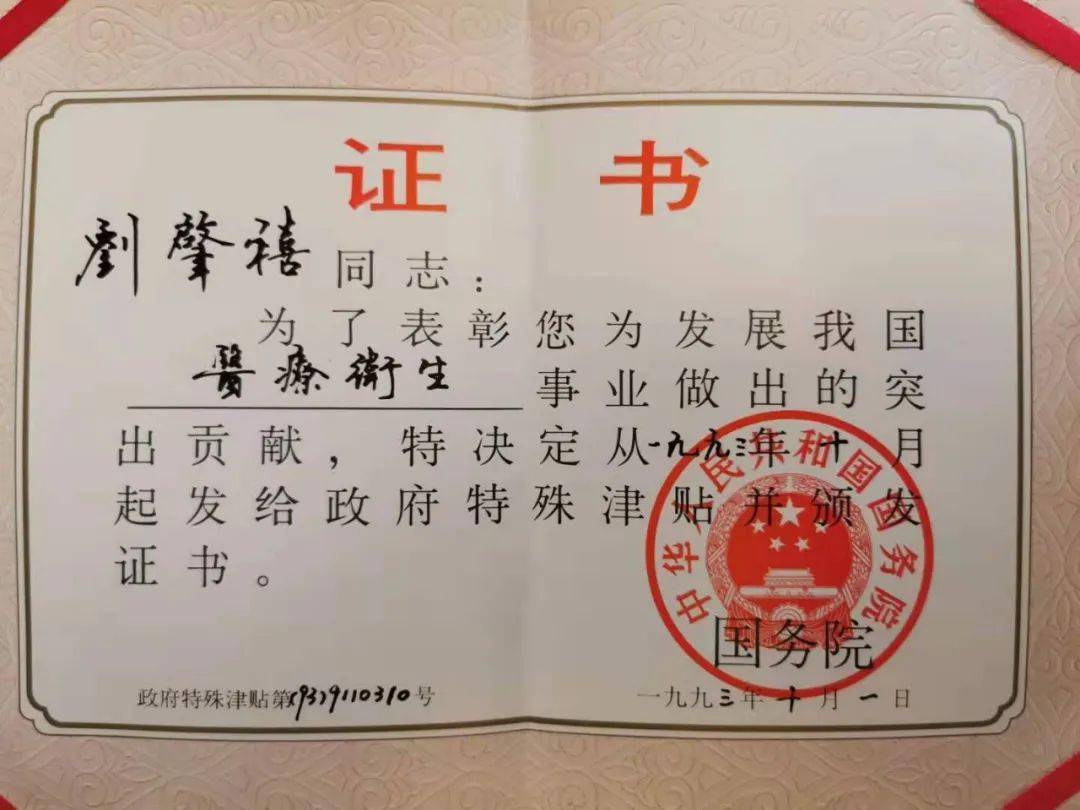 证书
劉肇禧同志：
为了表彰您为发展我国
醫療衛生事业做出的突
出贡献，特决定从一九九三年十月
起发给政府特殊津贴并颁发
证书。
中华人民共和国国务院
国务院
政府特殊津贴第(93)9110310号
一九九三年十月一日